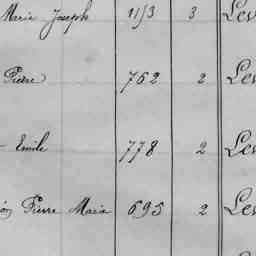 Marie Joseph 11/3 3 Lev
Pierre 762 2 Lev
Emile 778 2 Lev
Pierre Marie 695 2 Lev